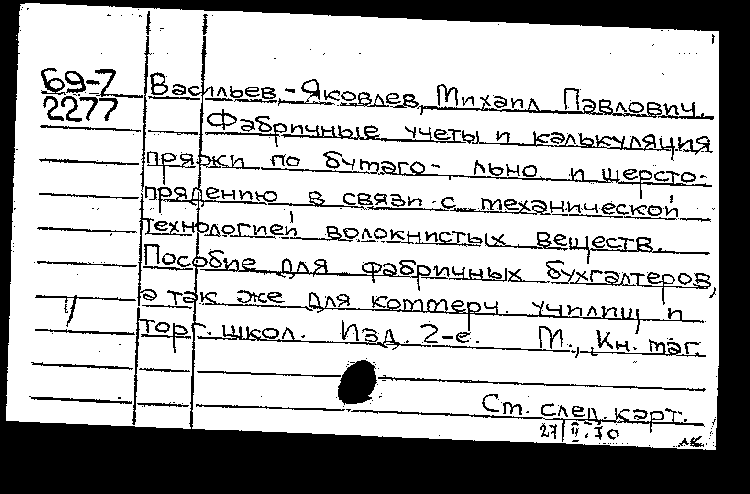 69-7
2277
Васильев,-Яковлев, Михаил Павлович.
Фабричные учеты и калькуляция
пряжи по бумаго-, льно и шерсто-
прядению в связи с механической
технологией волокнистых веществ.
Пособие для фабричных бухгалтеров,
а так же для коммерч. училищ и
торг. школ. Изд. 2-е. М., Кн. маг.
См. след. карт.
27/II-70